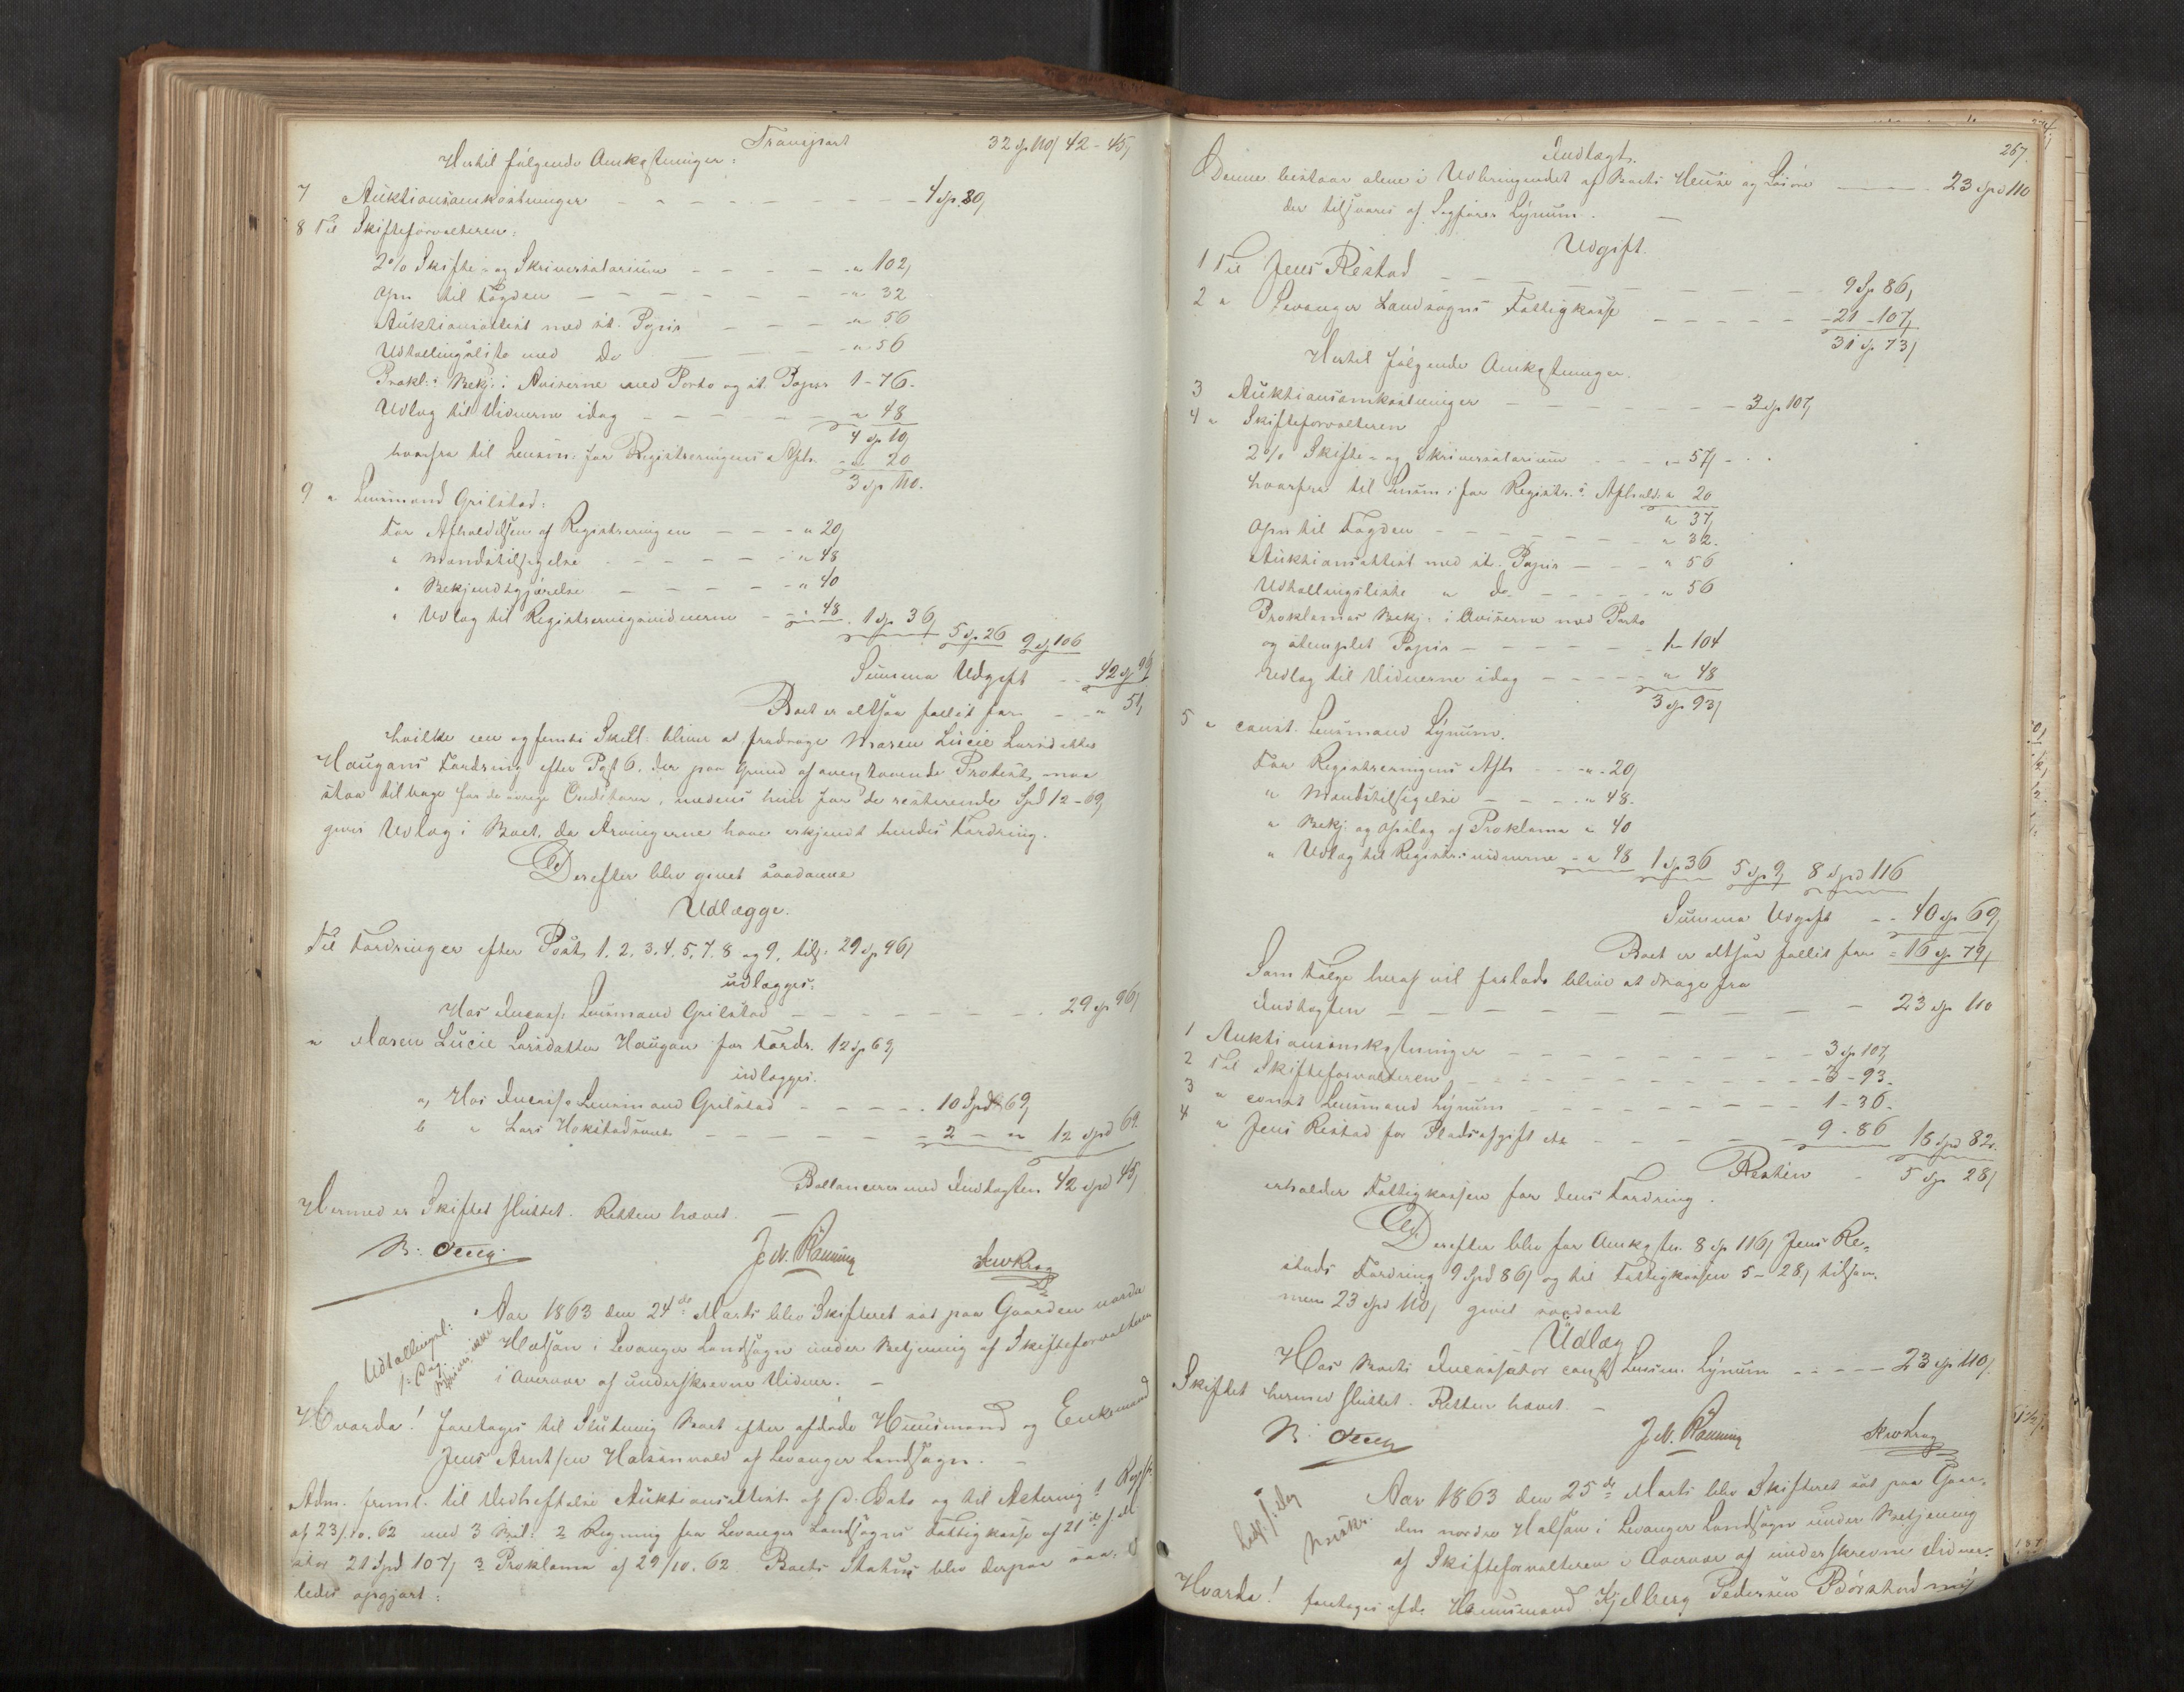 Transport 32 Sp 110/ 42 - 45/
Hertil følgende Omkostninger:
7 Auktionsomkostninger - - - 4 Sp. 80/
8 Til Skifteforvalteren:
2% Skifte- og Skriversalarium - - - " 102/
Opn til Fogden - - - " 32
Auktionsattest med st. Papir - - - " 56
Udtællingsliste med do - - - " 56
Prokl: Bekj: i Aviserne med Porto og st. Papir 1 - 76.
Udlæg til Vidnerne idag - - - " 48
4 Sp 10/
hvorfra til Lensm: for Registreringens Afh. - " 20
3 Sp 110.
9 " Lensmand Grilstad:
For Afholdelsen af Registreringen - - - " 20/
" Mandstilsigelse - - - " 48
" Bekjendtgjørelse - - - " 40
" Udlæg til Registreringsvidnerne - " 48. 1 Sp 36/ 5 Sp 26 9 Sp 106
Summa Udgift - - 42 Sp 96/
Boet er altsaa fallit for - - " 51/
hvilke een og femti Skill. bliver at fradrage Maren Lucie Larsdatter
Haugans Fordring efter Post 6. der paa Grund af Protest maa
staa tilbage for de øvrige Creditorer, medens hun for de resterende Spd 12 - 69/
gives Udlæg i Boet, da Arvingerne have erkjendt hendes Fordring.
Derefter blev givet saadanne
Udlægge.
Til Fordringer efter Post 1. 2. 3. 4. 5. 7. 8 og 9. tils: 29 Sp 96/
udlægges:
Hos Incass: Lensmand Grilstad - - - 29 Sp 96/
" Maren Lucie Larsdatter Haugan for Fordr. 12 Sp 69/
udlægges.
a, Hos Incasso Lensmand Grilstad - - - 10 Spd 69/
b " Lars Hokstad - - - 2 - " 12 Spd 69.
Ballancerer med Indtægten 42 Spd 45/
Hermed er Skiftet sluttet. Retten hævet.
J. N. Rønning
Aar 1863 den 24de Marts blev Skifteret sat paa Gaarden nordre
Halsan i Levanger Landsogn under Betjening af Skifteforvalteren
i Overvær af underskrevne Vidner. -
Hvorda! foretages til Slutning Boet efter afdøde Huusmand og Enkemand
Jens Arntsen Halsanvald af Levanger Landsogn. -
Adm. freml. til Vedheftelse Auktionsattest af D. Dato og til Acterning 1 Regstr.
af 23/10.62 med 3 Bil: 2 Regning fra Levanger Landsogns Fattigkasse af 21de f. M
stor 21 Spd 107/ 3 Proklama af 29/10.62 Boets Status blev derpaa saa-
ledes opgjort:
267.
Indtægt.
Denne bestaar alene i Udbringendet af Boets Heste og Løsøre - - - 23 Spd 110
der tilsvares af Sagfører Lynum. -
Udgift.
1 Til Jens Restad - - - 9 Sp 86/
2 " Levanger Landsogns Fattigkasse - - - 21 - 107/
31 Sp 73/
Hertil følgende Omkostninger.
3 Auktionsomkostninger - - - 3 Sp 107/
4 " Skifteforvalteren
2% Skifte- og Skriversalarium - - - " 57/
hvorfra til Lensm: for Registr.s Afhold. " 20
" 37/
Opn til Fogden - - - " 32.
Auktionsattest med st. Papir - - - " 56
Udtællingsliste " do - - - " 56
Proklamas Bekj: i Aviserne med Porto
og stemplet Papir - - - 1 - 104
Udlæg til Vidnerne idag - - - " 48
3 Sp 93/
5 " const. Lensmand Lynum.
For Registreringens Afh - - " 20/
" Mandstilsigelse - - - " 48.
" Bekj: og Opslag af Proklama " 40
" Udlæg til Registr: vidnerne - " 48 1 Sp 36 5 Sp 9/ 8 Spd 116
Summa Udgift - - 40 Sp 69/
Boet er altsaa fallit for - 16 Sp 79/
Som Følge heraf vil forlods blive at drage fra
Indtægten - - - 23 Sp 110
1 Auktionsomkostninger - - - 3 Sp 107/
2 Til Skifteforvalteren - - - 3 - 93.
3 " const Lensmand Lynum - - - 1 - 36.
4 " Jens Restad for Pladsafgift etc - - - 9 - 86 18 Spd 82.
Resten - 5 Sp 28/
erholder Fattigkassen for dens Fordring.
Derefter blev for Omkostn. 8 Sp 116/ Jens Re-
stads Fordring 9 Spd 86/ og til Fattigkassen 5 - 28/ tilsam-
men 23 Spd 110/ givet saadant
Udlæg
Hos Boets Incassator const Lensm. Lynum - - - 23 Sp 110/
Skiftet hermed sluttet. Retten hævet. -
J. N. Rønning
Aar 1863 den 25de Marts blev Skifteret sat paa Gaar-
den nordre Halsan i Levanger Landsogn under Betjening
af Skifteforvalteren i Overvær af underskrevne Vidner.
Hvorda! foretages afd. Huusmand Kjelberg Pedersen